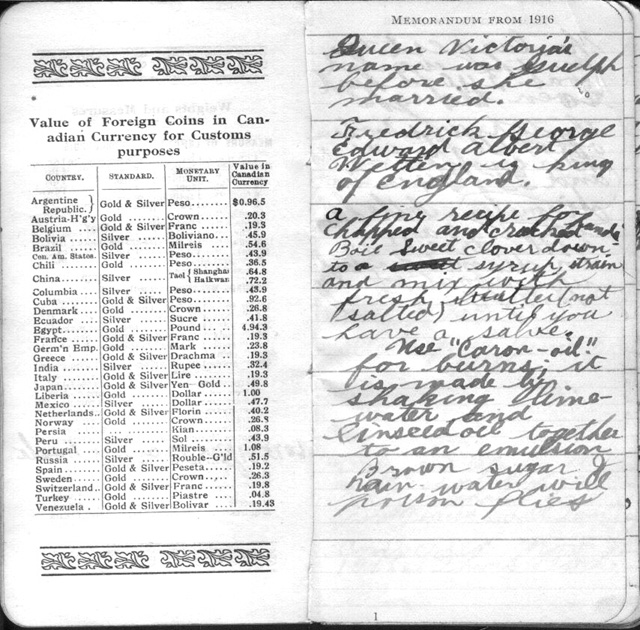 Value of Foreign Coins in Can-
adian Currency for Customs
purposes
COUNTRY. STANDARD. MONETARY UNIT. Value in Canadian Currency
Argentine Republic. } Gold & Silver Peso....... $0.96.5
Austria-H'g'y Gold ....... Crown....... .20.3
Belgium .... Gold & Silver Franc ....... .19.3
Bolivia ..... Silver ....... Boliviano... .45.9
Brazil ...... Gold ....... Milreis ..... .54.6
Con. Am. States. Silver ....... Peso....... .43.9
Chili ....... Gold ....... Peso....... .36.5
China....... Silver ....... Tael { Shanghai .64.8
Haikwan .72.2
Columbia ... Silver ....... Peso....... .43.9
Cuba ....... Gold & Silver Peso....... .92.6
Denmark ... Gold ....... Crown....... .26.8
Ecuador .... Silver ....... Sucre ....... .41.8
Egypt....... Gold ....... Pound ...... 4.94.3
France ..... Gold & Silver Franc ....... .19.3
Germ'n Emp. Gold ....... Mark ....... .23.8
Greece ..... Gold & Silver Drachma ... .19.3
India ....... Silver ....... Rupee ...... .32.4
Italy ....... Gold & Silver Lire ........ .19.3
Japan ...... Gold & Silver Yen Gold... .49.8
Liberia ..... Gold ....... Dollar ...... 1.00
Mexico ..... Silver ....... Dollar ...... .47.7
Netherlands.. Gold & Silver Florin ...... .40.2
Norway .... Gold ....... Crown...... .26.8
Persia ...... Kian ....... .08.3
Peru ....... Silver ....... Sol ........ .43.9
Portugal .... Gold ....... Milreis .... 1.08
Russia ..... Silver ....... Rouble-G'ld .51.5
Spain ...... Gold & Silver Peseta...... .19.2
Sweden..... Gold ....... Crown..... .26.3
Switzerland .. Gold & Silver Franc ...... .19.8
Turkey ..... Gold ....... Piastre .... .04.8
Venezuela .. Gold & Silver Bolivar .... .19.43
MEMORANDUM FROM 1916
Queen Victoria's
name was Guelph
before she
married.
Fredrick George
Edward Albert
Wettin is king
of England.
a fine recipe for
chapped and cracked hands
Boil Sweet clover down
to a syrup, strain
and mix with
fresh butter (not
salted) until you
have a salve.
Use "Caron-oil"
for burns, it
is made by
shaking lime-
water and
linseed oil together
to an emulsion
Brown sugar &
rain-water will
poison flies
1